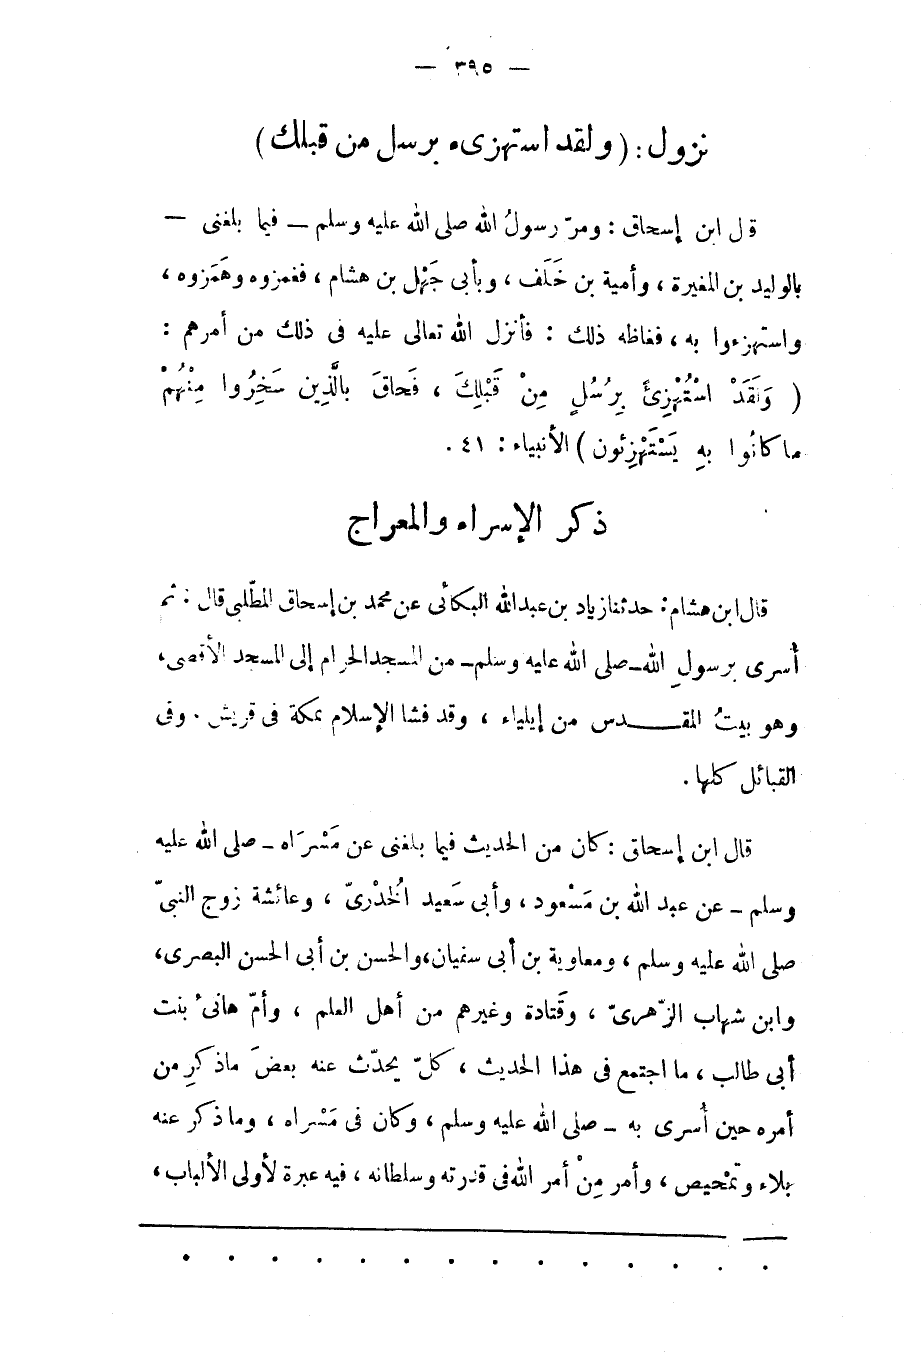 — ٣٩٥ —
نزول : ( ولقد استهزىء برسل من قبلك )
قال ابن إسحاق : ومرّ رسولُ الله صلى الله عليه وسلم — فيما بلغنى —
بالوليد بن المغيرة ، وأمية بن خَلَف ، وبأبى جَهْل بن هشام ، فغمزوه وهَمَزوه ،
واستهزءوا به ، فغاظه ذلك : فأنزل الله تعالى عليه فى ذلك من أمرهم :
( وَلَقَدْ اسْتُهْزِئَ بِرُسُلٍ مِنْ قَبْلِكَ ، فَحاقَ بالَّذِين سَخِرُوا مِنْهُمْ
ما كانُوا بهِ يَسْتَهْزِئون ) الأنبياء : ٤١ .
ذكر الإسراء والمعراج
قال ابن هشام : حدثنا زياد بن عبد الله البكائى عن محمد بن إسحاق المطلّبى قال : ثم
أُسرى برسولِ الله — صلى الله عليه وسلم — من المسجد الحرام إلى المسجد الأقصى ،
وهو بيتُ المقـــدس من إيلياء ، وقد فشا الإسلام بمكة فى قريش . وفى
القبائل كلها .
قال ابن إسحاق : كان من الحديث فيما بلغنى عن مَسْرَاه — صلى الله عليه
وسلم — عن عبد الله بن مَسْعود ، وأبى سَعيد الُخدْرىّ ، وعائشة زوج النبىّ
صلى الله عليه وسلم ، ومعاوية بن أبى سفيان ، والحسن بن أبى الحسن البصرى ،
وابن شهاب الزّهرىّ ، وقَتادة وغيرهم من أهل العلم ، وأمّ هانئ بنت
أبى طالب ، ما اجتمع فى هذا الحديث ، كلّ يحدّث عنه بعضَ ماذكرِ من
أمره حين أُسرى به — صلى الله عليه وسلم ، وكان فى مَسْراه ، وما ذكر عنه
بلاء وتمْحيص ، وأمر مِنْ أمر الله فى قدرته وسلطانه ، فيه عبرة لأولى الألباب ،
. . . . . . . . . . . . . .